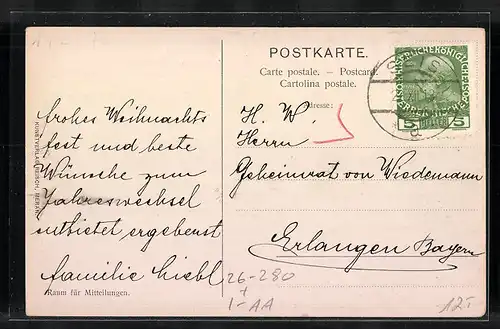 POSTKARTE.
Carte postale. – Postcard.
Cartolina postale.
Adresse:
frohes Weihnachts
fest und beste
Wünsche zum
Jahreswechsel
entbietet ergebenst
familie Liebl
H. W.
Herrn
Geheimrat von Wiedemann
Erlangen Bayern
Raum für Mitteilungen.
KUNSTVERLAG
MERAN
5
HELLER
5
26-280
+
1-AA
12.-